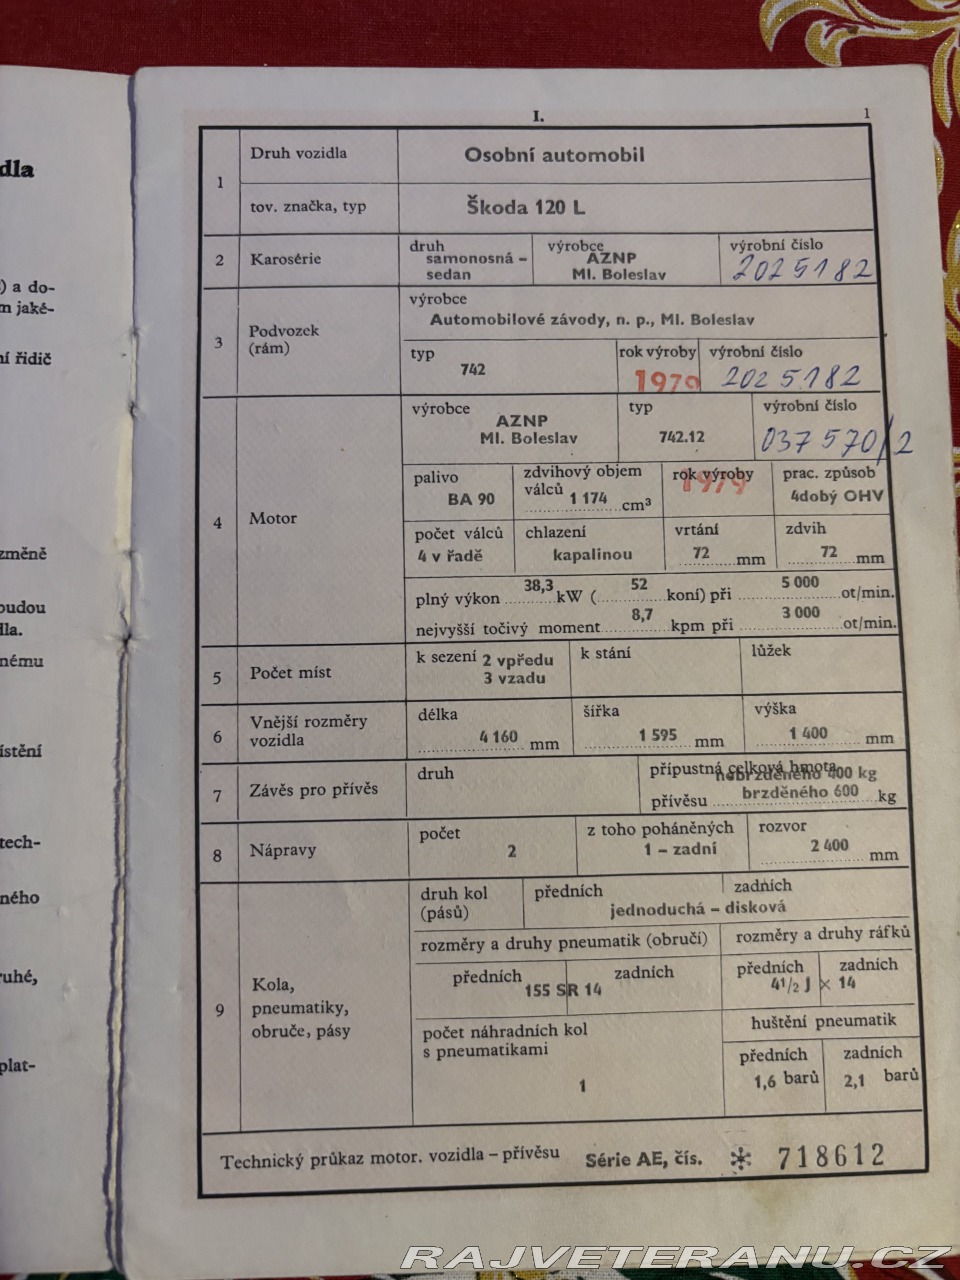 dla
) a do-
m jaké-
ní řidič
změně
budou
dla.
nému
ístění
tech-
ného
ruhé,
plat-
I.
1
1
Druh vozidla
Osobní automobil
tov. značka, typ
Škoda 120 L
2
Karosérie
druh
samonosná –
sedan
výrobce
AZNP
Ml. Boleslav
výrobní číslo
2025182
3
Podvozek
(rám)
výrobce
Automobilové závody, n. p., Ml. Boleslav
typ
742
rok výroby
1979
výrobní číslo
2025182
4
Motor
výrobce
AZNP
Ml. Boleslav
typ
742.12
výrobní číslo
037570/2
palivo
BA 90
zdvihový objem
válců 1 174 cm³
rok výroby
1979
prac. způsob
4dobý OHV
počet válců
4 v řadě
chlazení
kapalinou
vrtání
72 mm
zdvih
72 mm
plný výkon 38,3 kW ( 52 koní) při 5 000 ot/min.
nejvyšší točivý moment 8,7 kpm při 3 000 ot/min.
5
Počet míst
k sezení 2 vpředu
3 vzadu
k stání
lůžek
6
Vnější rozměry
vozidla
délka
4 160 mm
šířka
1 595 mm
výška
1 400 mm
7
Závěs pro přívěs
druh
přípustná celková hmota
nebrzděného 400 kg
přívěsu brzděného 600 kg
8
Nápravy
počet
2
z toho poháněných
1 – zadní
rozvor
2 400 mm
9
Kola,
pneumatiky,
obruče, pásy
druh kol
(pásů)
předních
zadních
jednoduchá – disková
rozměry a druhy pneumatik (obručí)
rozměry a druhy ráfků
předních
zadních
155 SR 14
předních
zadních
4½ J × 14
počet náhradních kol
s pneumatikami
1
huštění pneumatik
předních
1,6 barů
zadních
2,1 barů
Technický průkaz motor. vozidla – přívěsu Série AE, čís. * 718612
RAJVETERANU.CZ